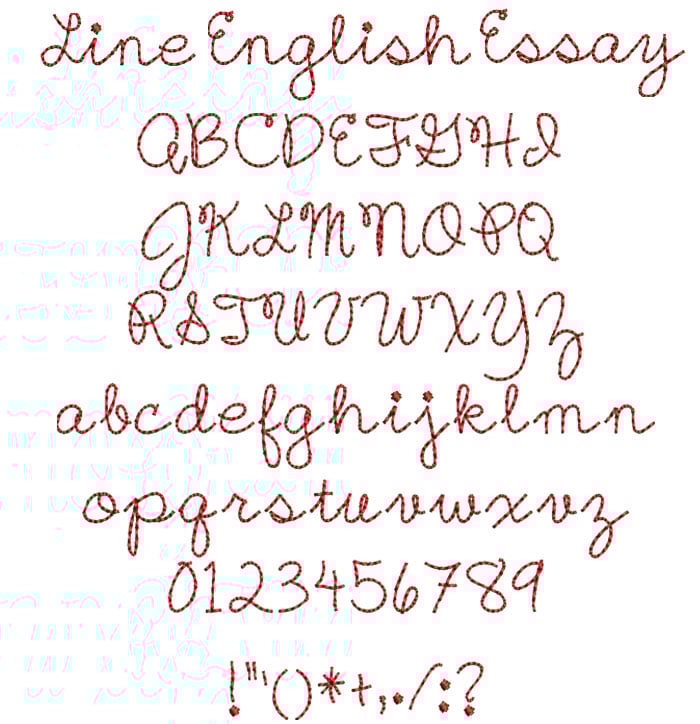 Line English Essay
ABCDEFGHI
JKLMNOPQ
RSTUVWXYZ
abcdefghijklmn
opqrstuvwxvz
0123456789
!"'()*+,./:?